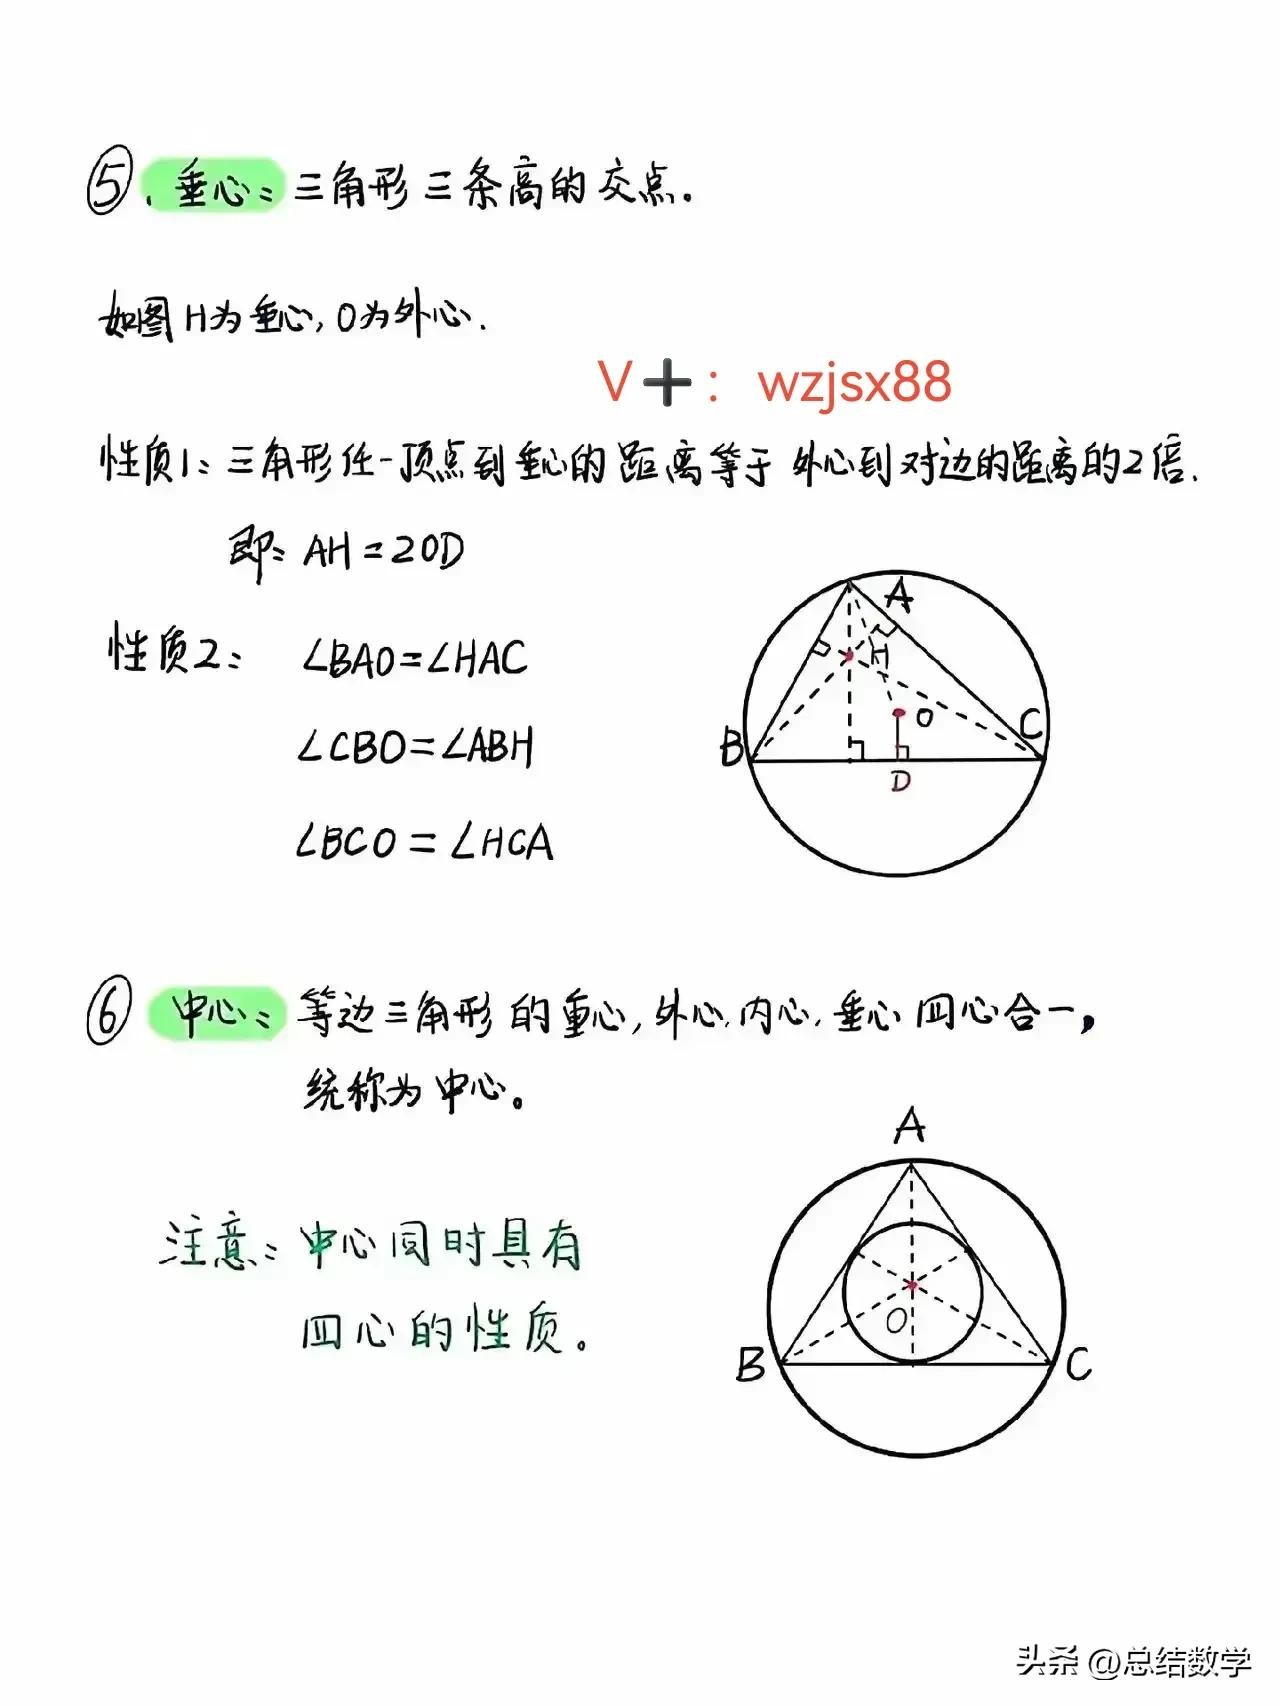 ⑤、垂心：三角形三条高的交点.
如图H为垂心,O为外心.
V➕：wzjsx88
性质1：三角形任一顶点到垂心的距离等于外心到对边的距离的2倍.
即：AH=2OD
性质2： ∠BAO=∠HAC
∠CBO=∠ABH
∠BCO=∠HCA
A
H
O
B
C
D
⑥ 中心：等边三角形的重心,外心,内心,垂心四心合一,
统称为中心。
A
注意：中心同时具有
四心的性质。
O
B
C
头条 @总结数学